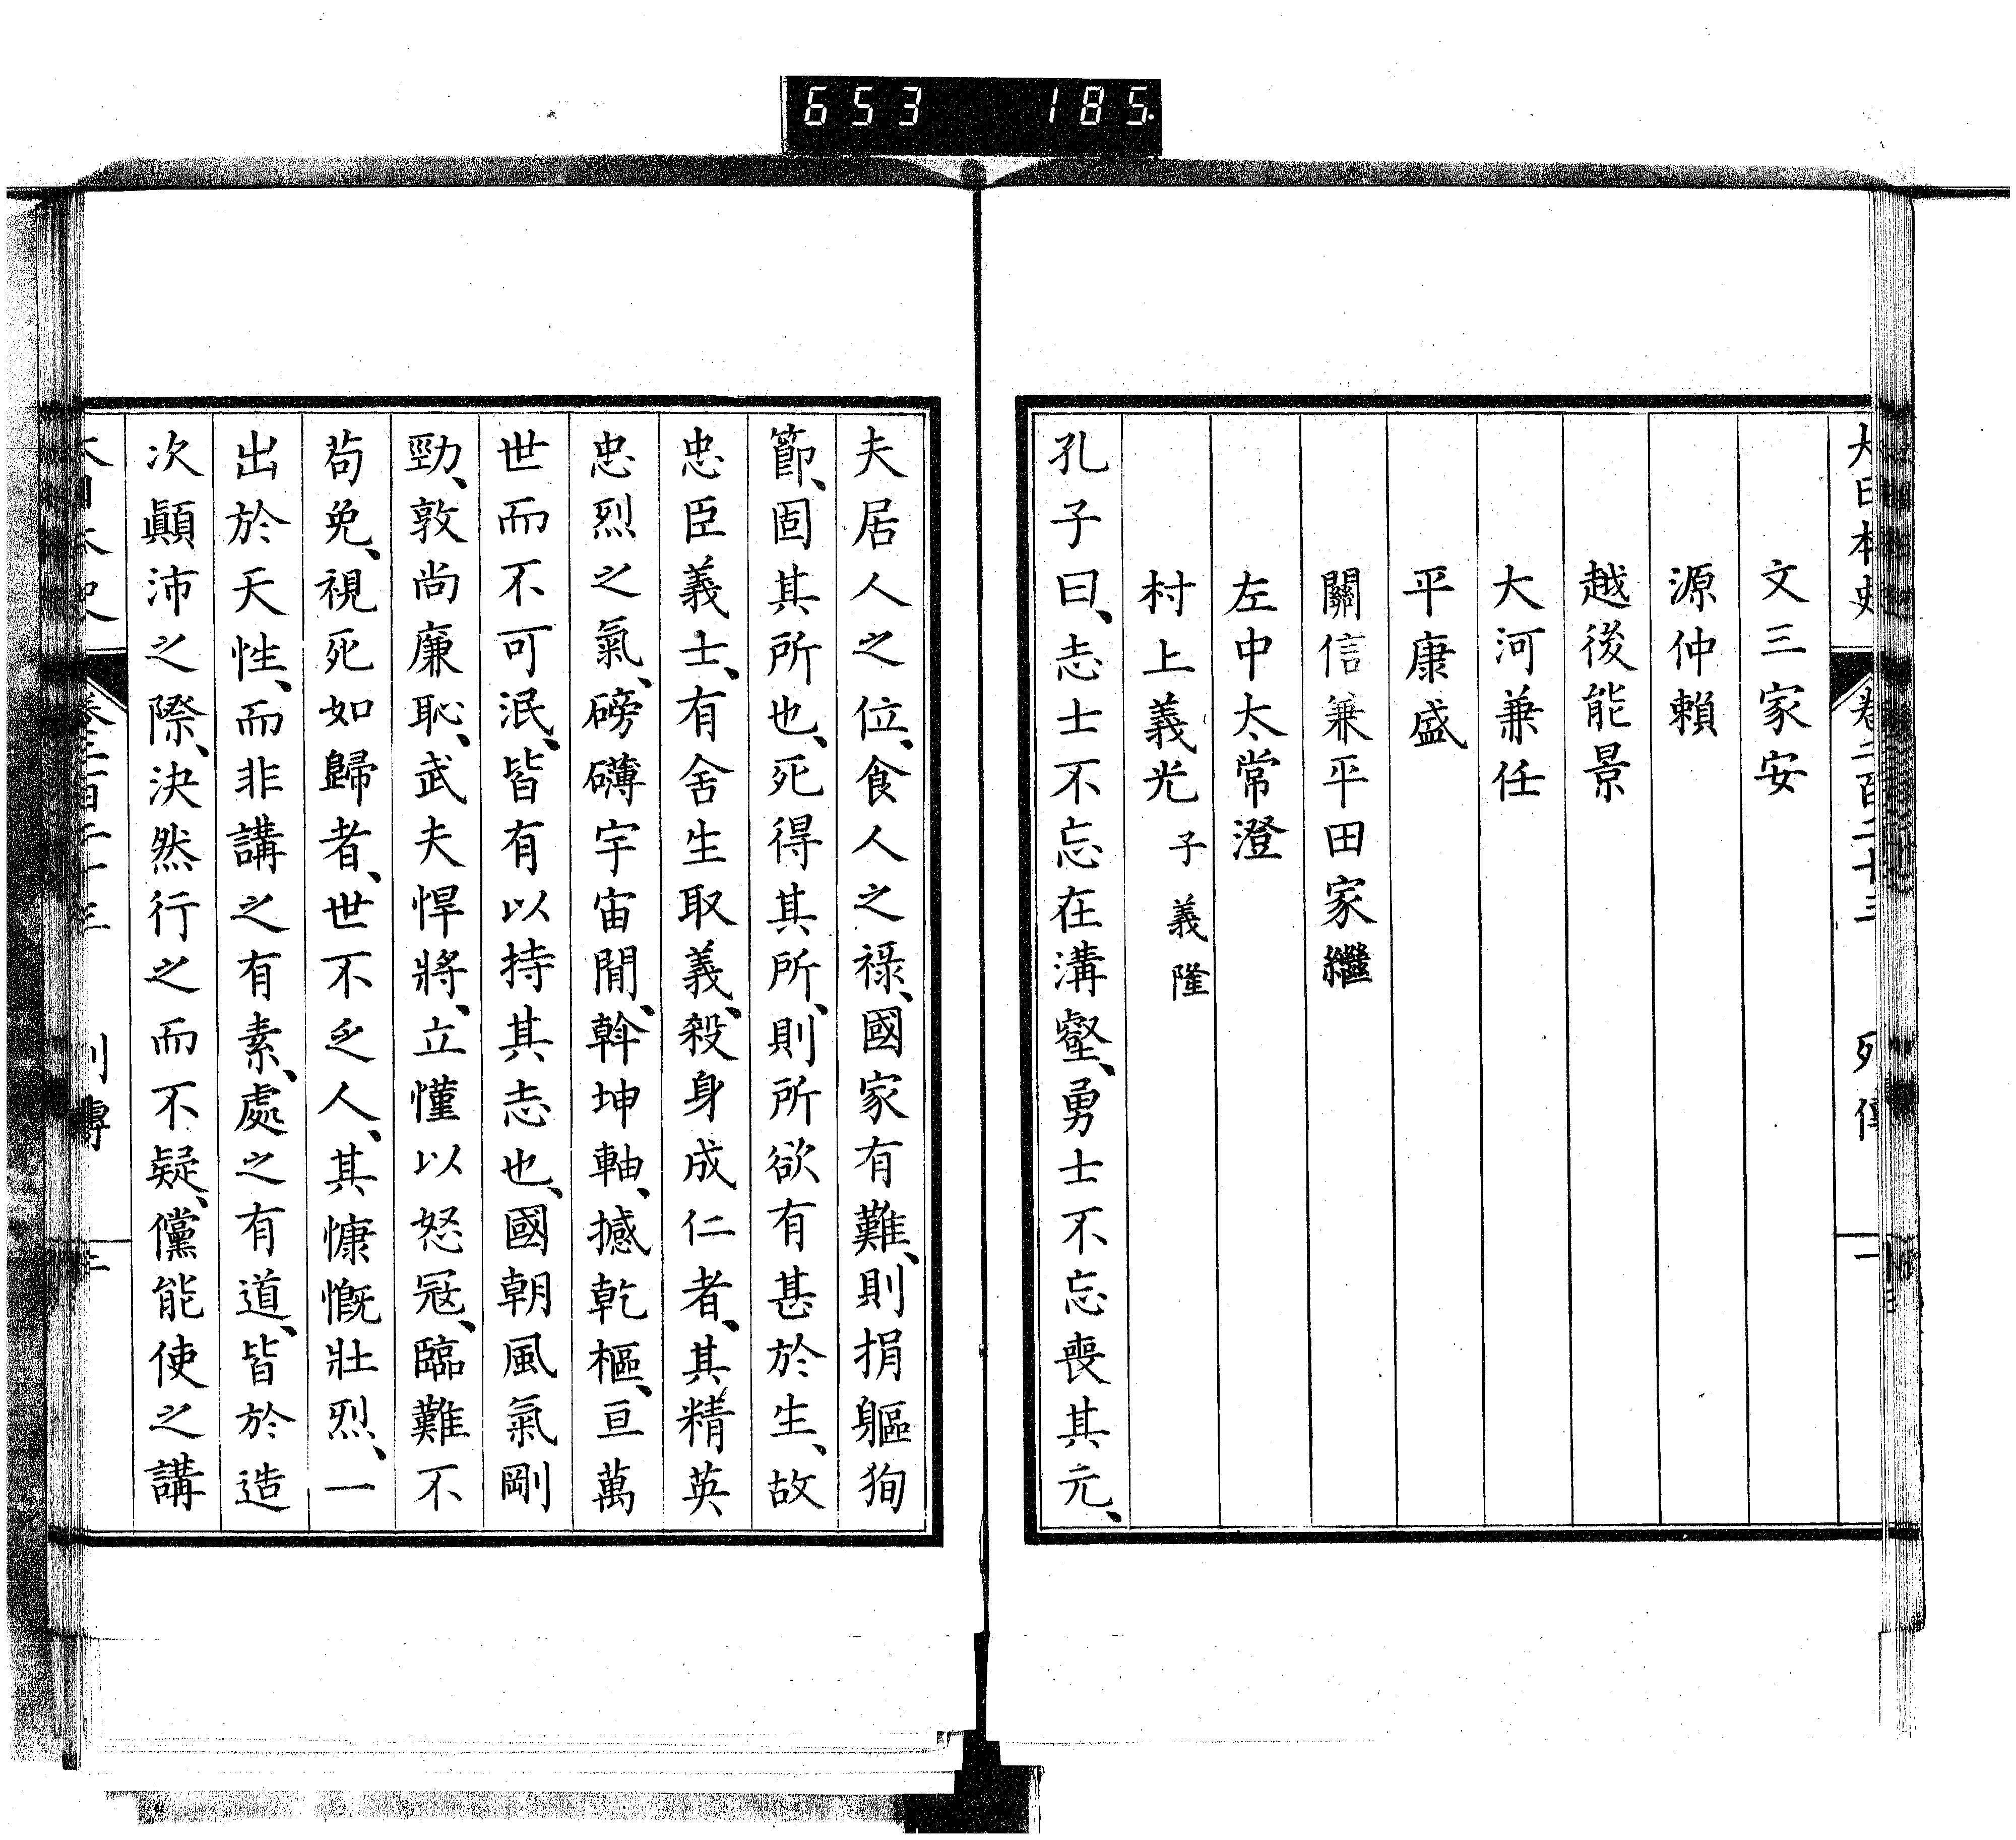 653 185.
大日本史 卷二百二十三 列傳 一
文三家安
源仲賴
越後能景
大河兼任
平康盛
關信兼平田家繼
左中太常澄
村上義光 子義隆
孔子曰、志士不忘在溝壑、勇士不忘喪其元、
夫居人之位、食人之祿、國家有難、則捐軀狥
節、固其所也、死得其所、則所欲有甚於生、故
忠臣義士、有舍生取義、殺身成仁者、其精英
忠烈之氣、磅礴宇宙間、斡坤軸、撼乾樞、亘萬
世而不可泯、皆有以持其志也、國朝風氣剛
勁、敦尚廉恥、武夫悍將、立懂以怒冦、臨難不
苟免、視死如歸者、世不乏人、其慷慨壯烈、一
出於天性、而非講之有素、處之有道、皆於造
次顚沛之際、決然行之而不疑、儻能使之講
大日本史 卷二百二十三 列傳